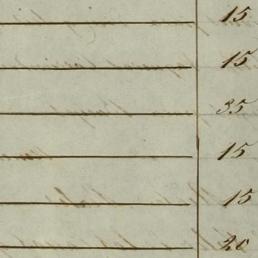 15
15
35
15
15
20